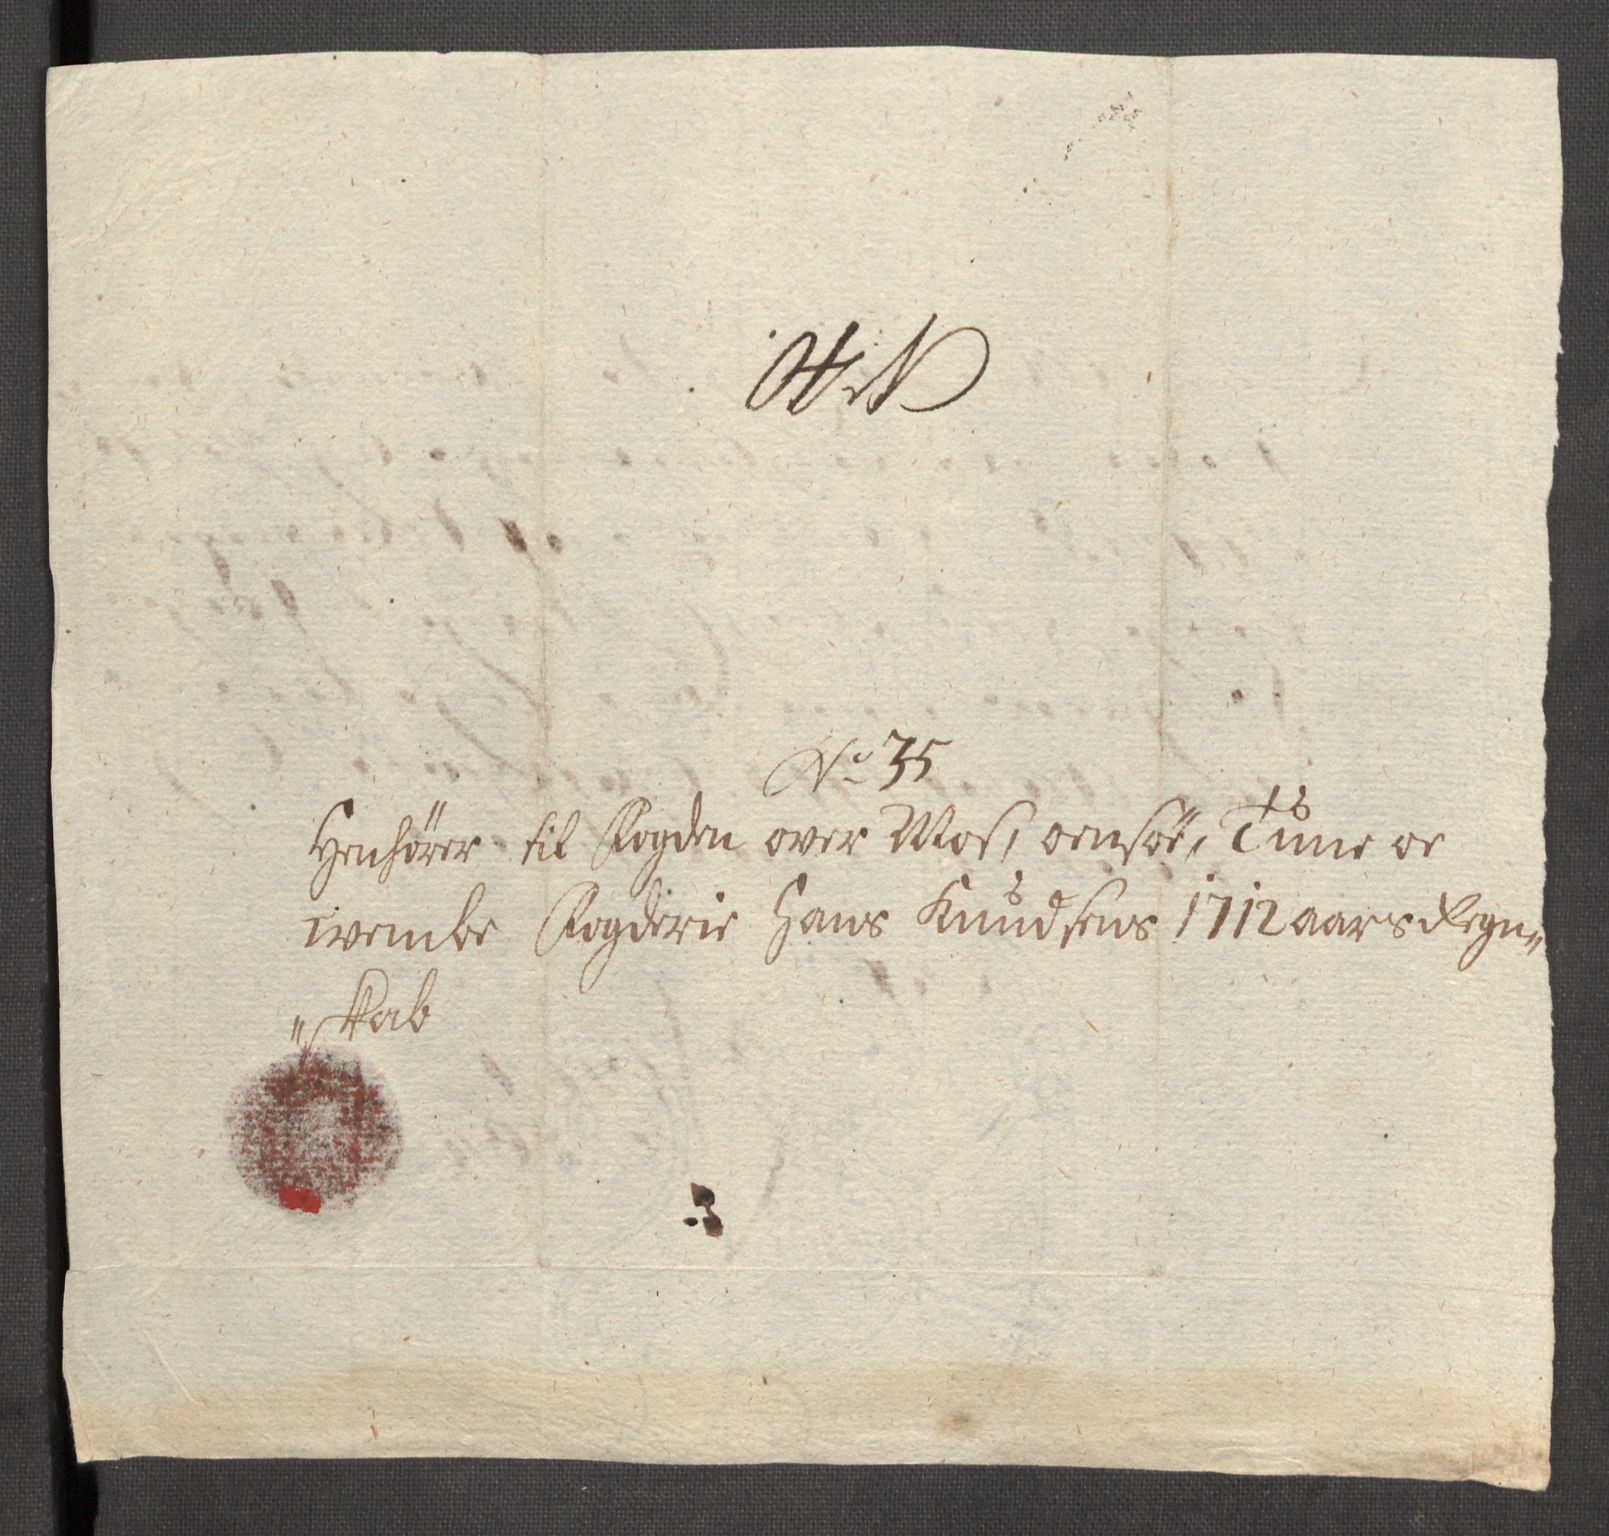 No 35
Henhører til Fogden over Mos, onsøe, Tune oc
wembe Fogderie Hans Knudsens 1712 aars Regn„
„skab